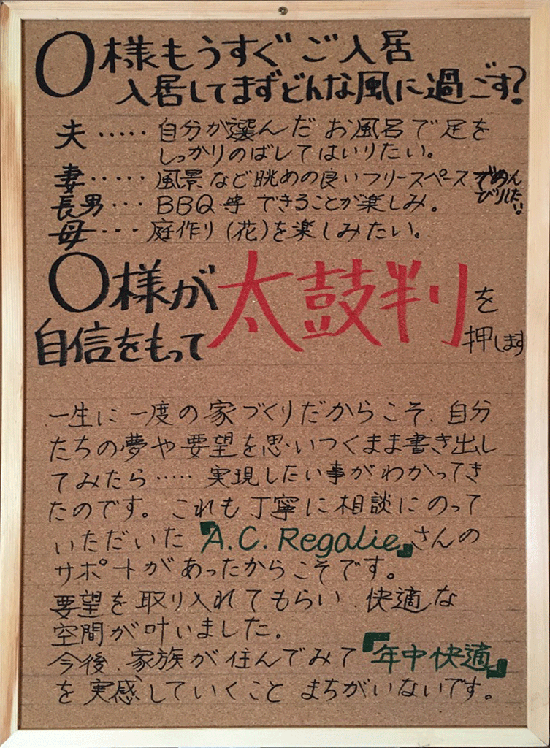 ○様もうすぐご入居
入居してまずどんな風に過ごす?
夫‥‥‥自分が選んだお風呂で足を
しっかりのばしてはいりたい。
妻‥‥‥風景など眺めの良いフリースペースでのんびりしたい。
長男‥‥BBQ等できることが楽しみ。
母‥‥‥庭作り(花)を楽しみたい。
○様が太鼓判を
自信をもって押します
一生に一度の家づくりだからこそ、自分
たちの夢や要望を思いつくまま書き出し
てみたら‥‥‥実現したい事がわかってき
たのです。これも丁寧に相談にのって
いただいた『A.C.Regalie』さんの
サポートがあったからこそです。
要望を取り入れてもらい、快適な
空間が叶いました。
今後、家族が住んでみて『年中快適』
を実感していくことまちがいないです。